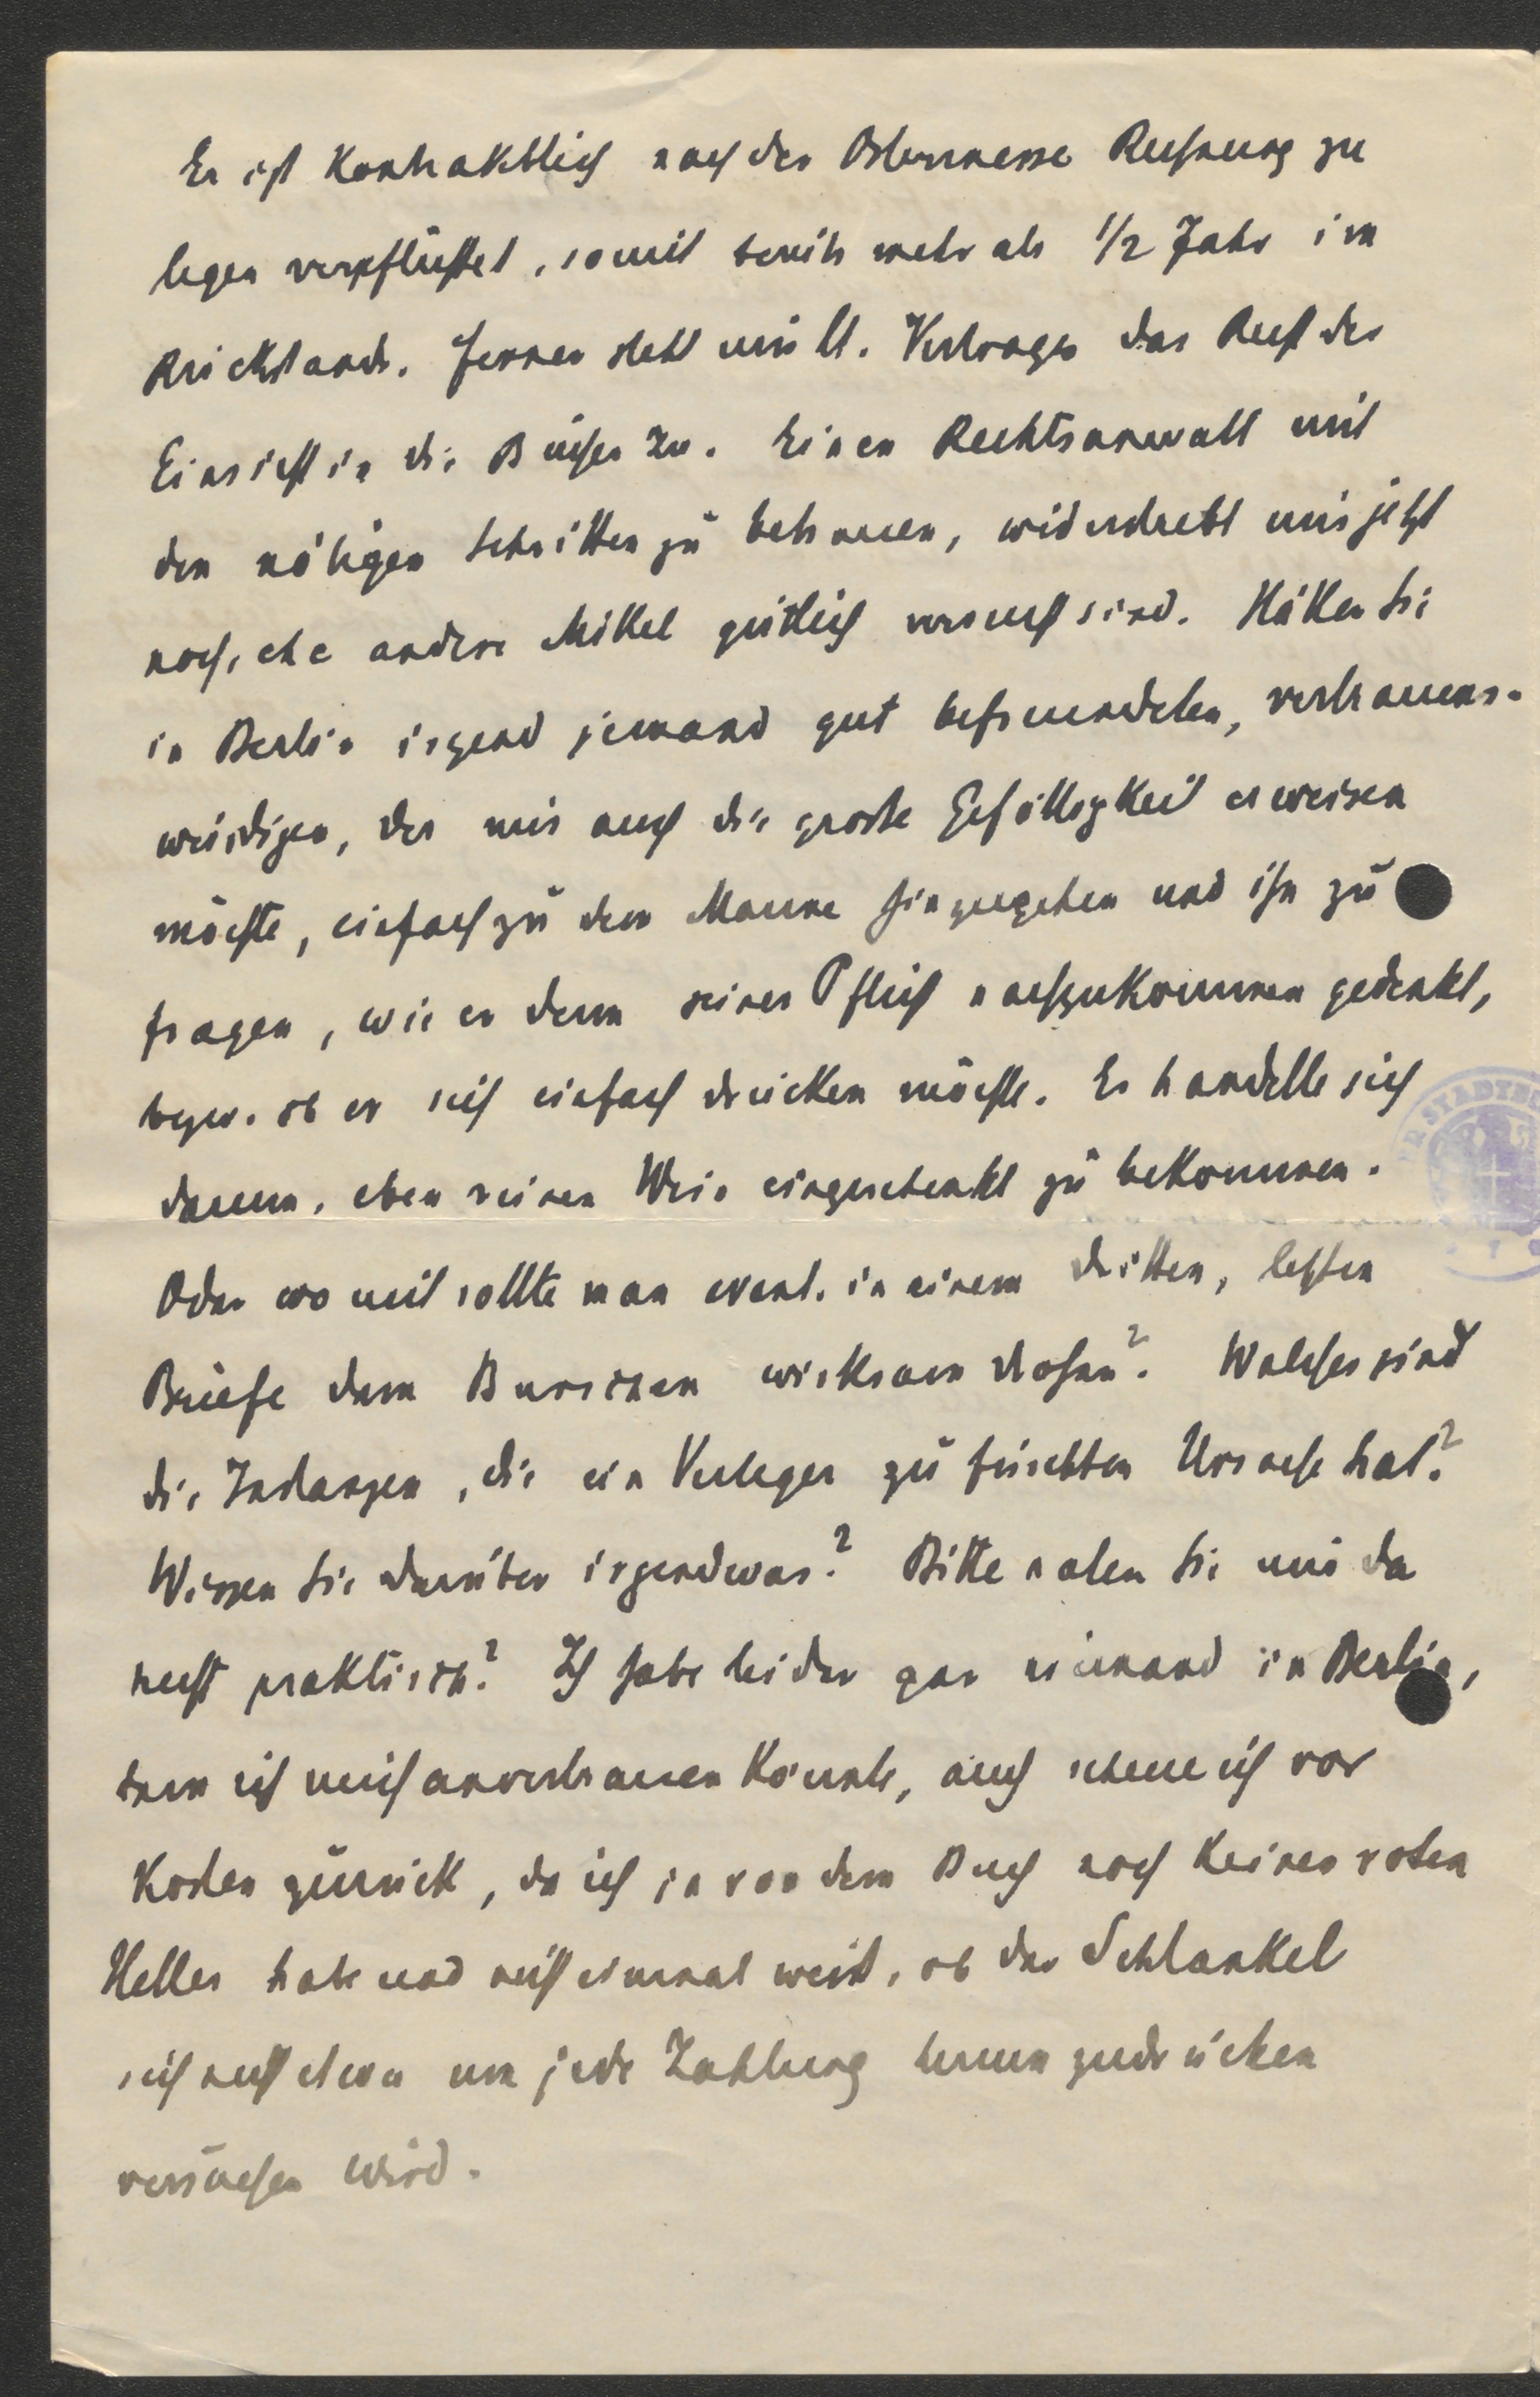 Er ist kontraktlich nach der Ostermesse Rechnung zu
legen verpflichtet, somit bereits mehr als 1/2 Jahr im
Rückstande. Ferner steht mir lt. Vertrages das Recht der
Einsicht in die Bücher zu. Einen Rechtsanwalt mit
den nötigen Schritten zu betrauen, widerstrebt mir jetzt
noch, ehe andere Mittel gütlich versucht sind. Hätten Sie
in Berlin irgend jemand gut befreundeten, vertrauens-
würdigen, der mir auch die große Gefälligkeit erweisen
möchte, einfach zu dem Manne hinzugehen und ihn zu
fragen, wie er denn seiner Pflicht nachzukommen gedenkt,
bezw. ob er sich einfach drücken möchte. Es handelte sich
darum, eben reinen Wein eingeschenkt zu bekommen.
Oder womit sollte man event. in einem dritten, letzten
Briefe dem Burschen wirksam drohen? Welches sind
die Instanzen, die ein Verleger zu fürchten Ursache hat?
Wissen Sie darüber irgendwas? Bitte raten Sie mir da
recht praktisch? Ich habe leider gar niemand in Berlin,
dem ich mich anvertrauen könnte, auch scheue ich vor
Kosten zurück, da ich ja von dem Buch noch keinen roten
Heller habe und nicht einmal weiß, ob der Schlankel
sich nicht etwa um jede Zahlung herum zudrücken
versuchen wird.